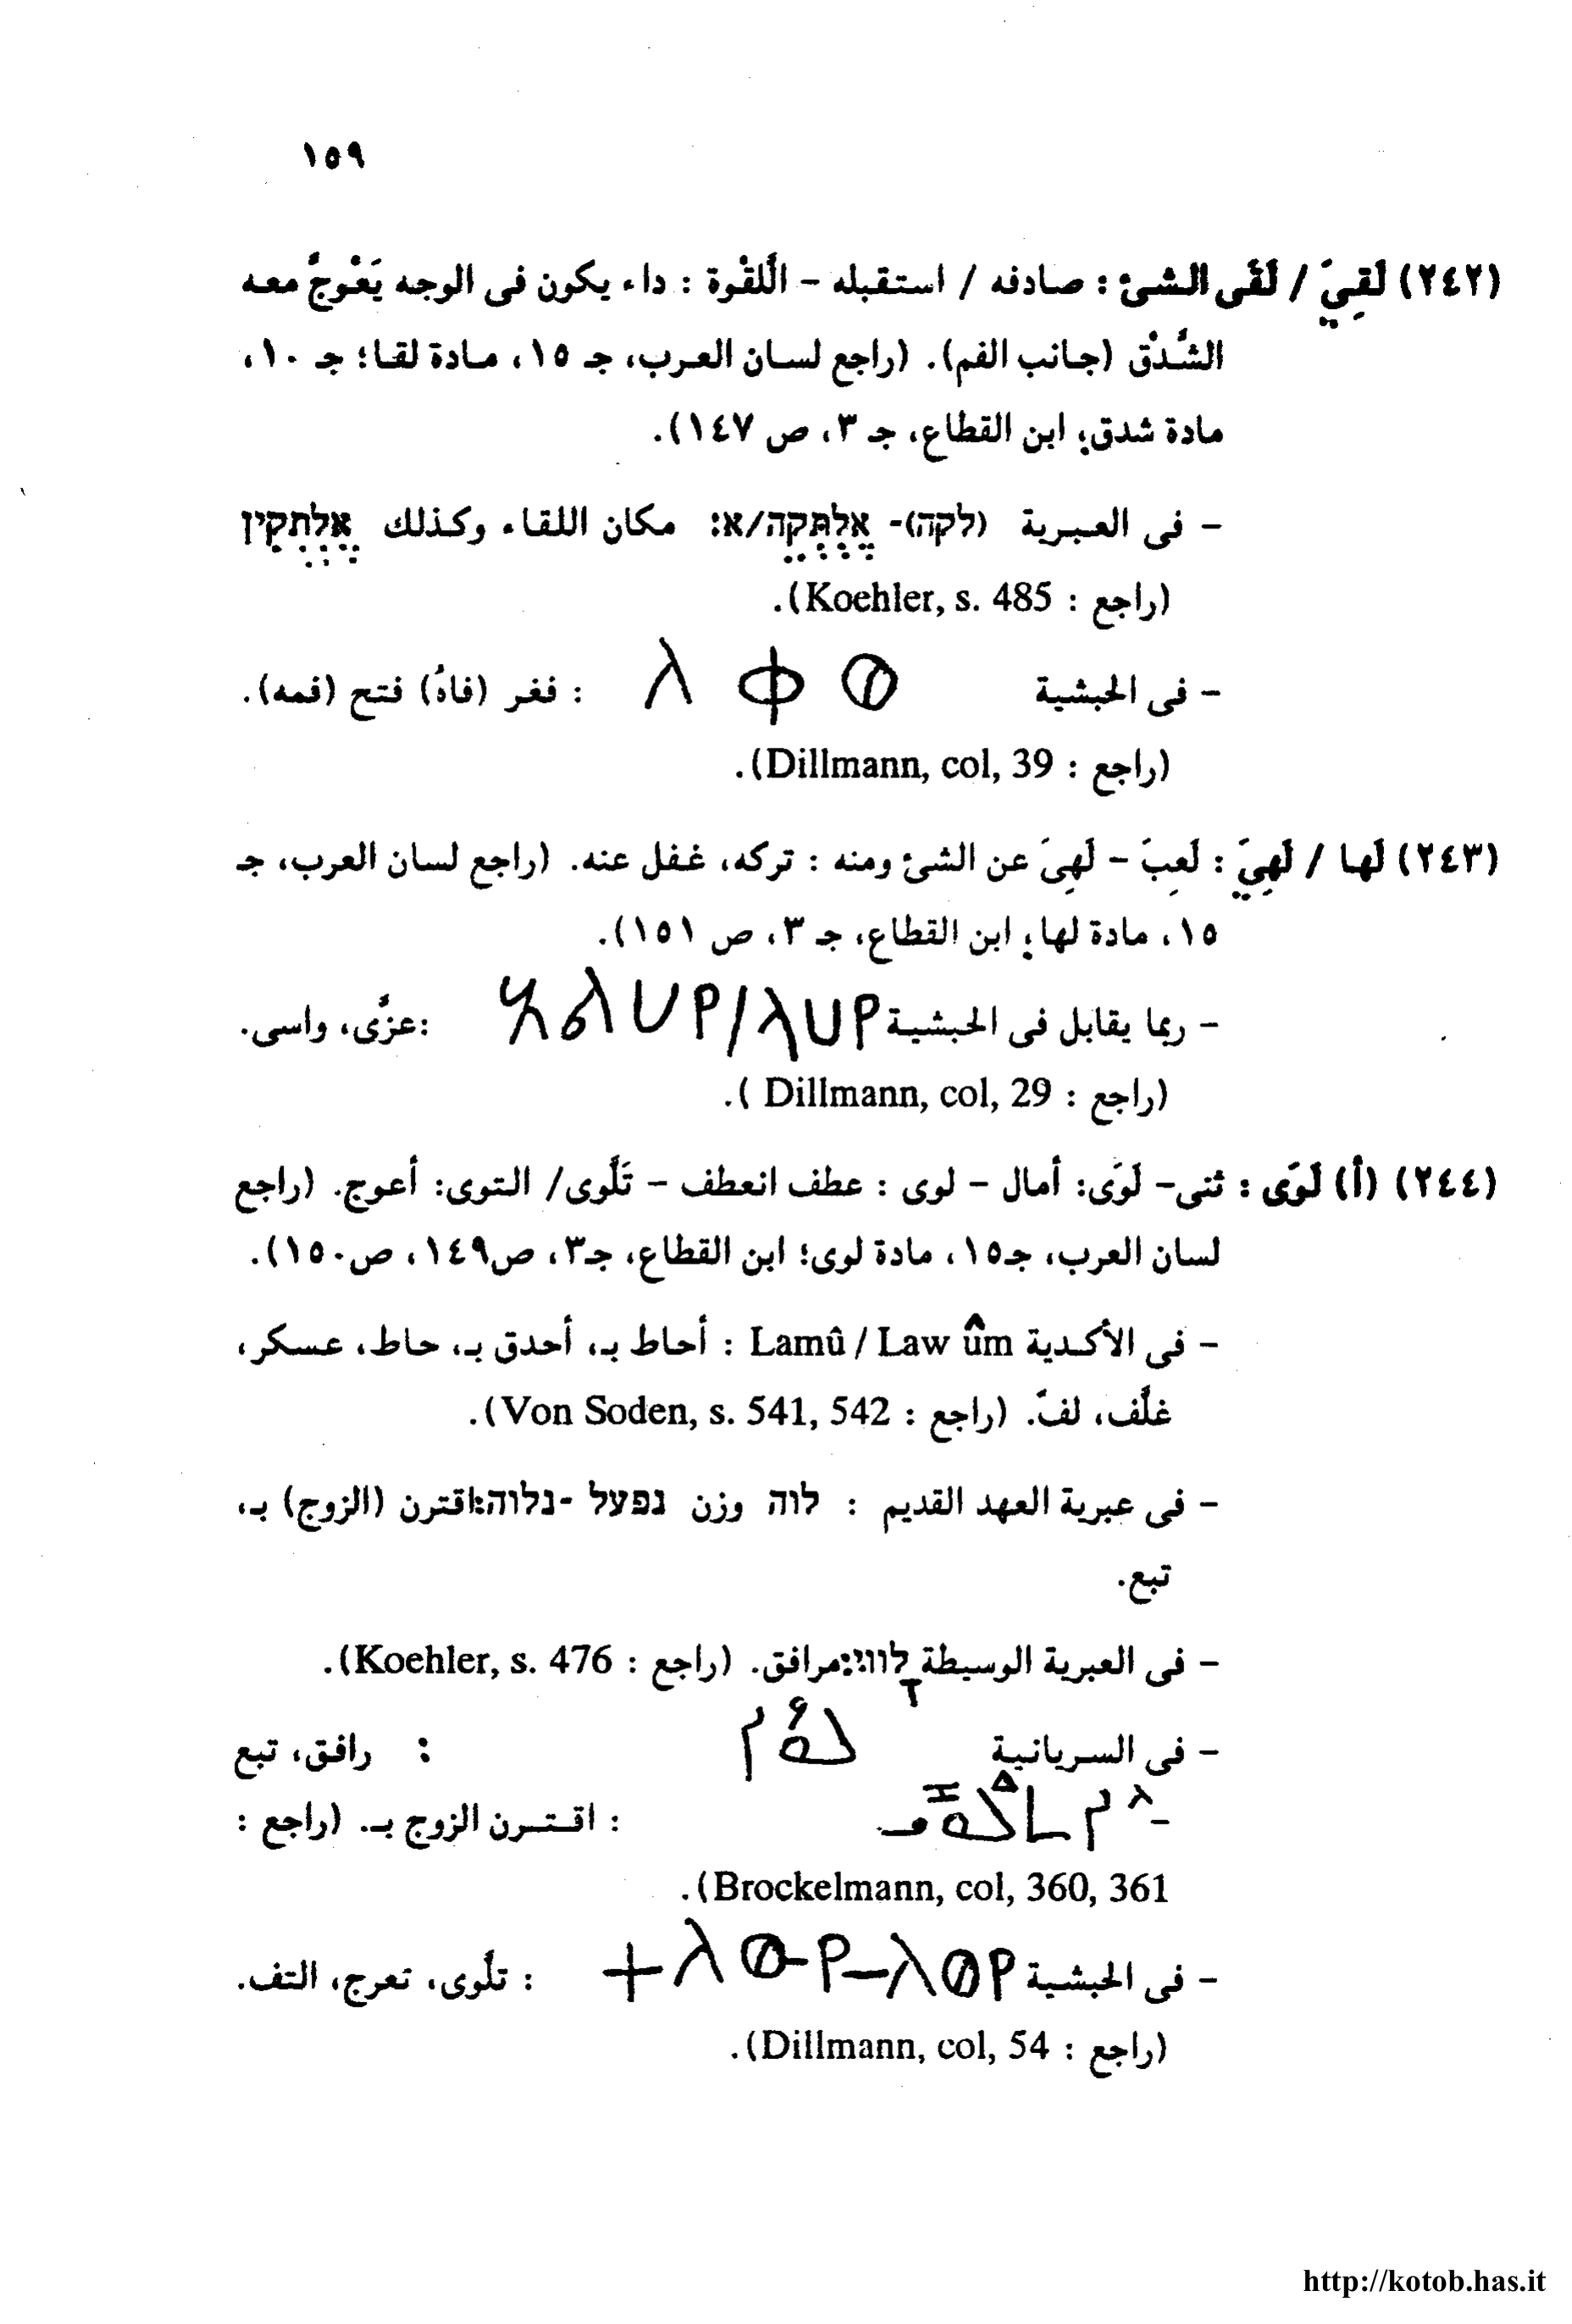 ١٥٩
(٢٤٢) لَقِيَ / لَقَى الشئ : صادفه / استقبله – اللَّقْوة : داء يكون فى الوجه يَعْوجُّ معه
الشُّدْق (جانب الفم). (راجع لسان العرب، جـ ١٥، مادة لقا؛ جـ ١٠،
مادة شدق؛ ابن القطاع، جـ ٣، ص ١٤٧).
– فى العبرية (לקה)- אֶלְתְּקֵה/א: مكان اللقاء وكذلك אֶלְתְּקֵין
(راجع : Koehler, s. 485).
– فى الحبشية ለቀወ : فغر (فاهُ) فتح (فمه).
(راجع : Dillmann, col, 39).
(٢٤٣) لَها / لَهِيَ : لَعِبَ – لَهِىَ عن الشئ ومنه : تركه، غفل عنه. (راجع لسان العرب، جـ
١٥، مادة لها؛ ابن القطاع، جـ ٣، ص ١٥١).
– ربما يقابل فى الحبشية ለሀየ/ :عزَّى، واسى.
(راجع : Dillmann, col, 29 ).
(٢٤٤) (أ) لَوَى : ثنى– لَوَى: أمال – لوى : عطف انعطف – تَلَّوى/ التوى: أعوج. (راجع
لسان العرب، جـ١٥، مادة لوى؛ ابن القطاع، جـ٣، ص١٤٩، ص١٥٠).
– فى الأكدية Lamû / Law ûm : أحاط بـ، أحدق بـ، حاط، عسكر،
غلَّف، لفّ. (راجع : Von Soden, s. 541, 542).
– فى عبرية العهد القديم : לוה وزن נפעל -נלוה:اقترن (الزوج) بـ،
تبع.
– فى العبرية الوسيطة לווי:مرافق. (راجع : Koehler, s. 476).
– فى السريانية : رافق، تبع
– : اقتـرن الزوج بـ. (راجع :
Brockelmann, col, 360, 361).
– فى الحبشية ለወየ – ተለውየ : تلَّوى، تعرج، التف.
(راجع : Dillmann, col, 54).
http://kotob.has.it